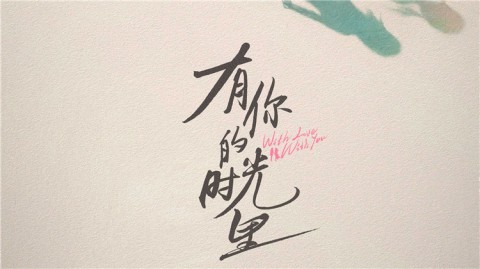 有你的时光里
With Love
With You